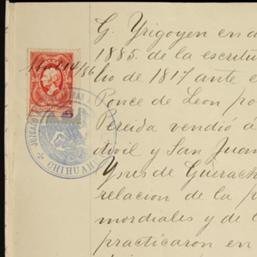 G. Yrigoyen en a
1885. de la escritu
lio de 1817 ante e
Ponce de Leon po
Pereida vendió á
divil y San Juan
Ynes de Guerach
relacion de la p
mordiales y de l
practicaron en
CHIHUAH